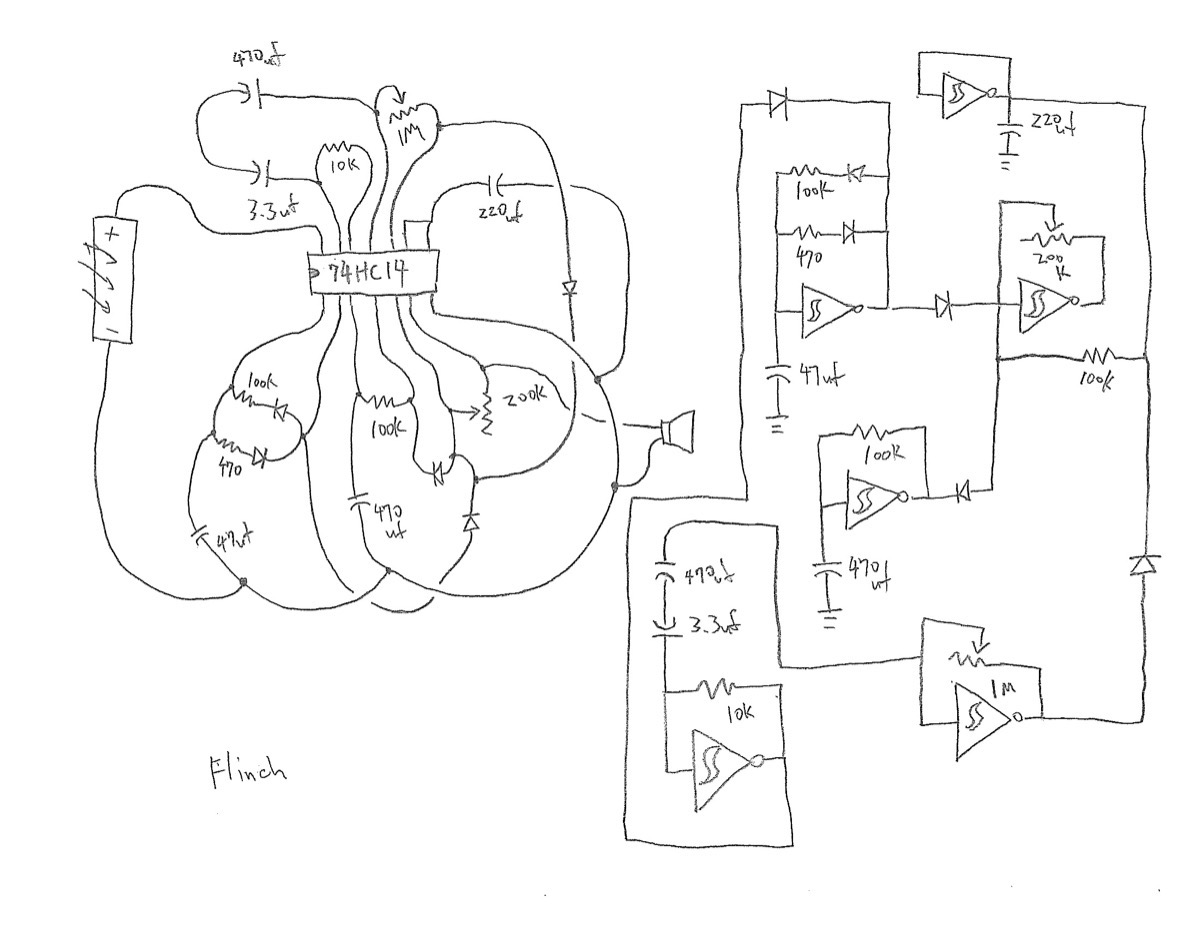 470uf
1M
10K
3.3uf
220uf
+
74HC14
-
100K
470
47uf
100K
470
uf
200K
Flinch
220uf
100K
470
47uf
200
K
100K
100K
470
uf
470uf
3.3uf
10K
1M